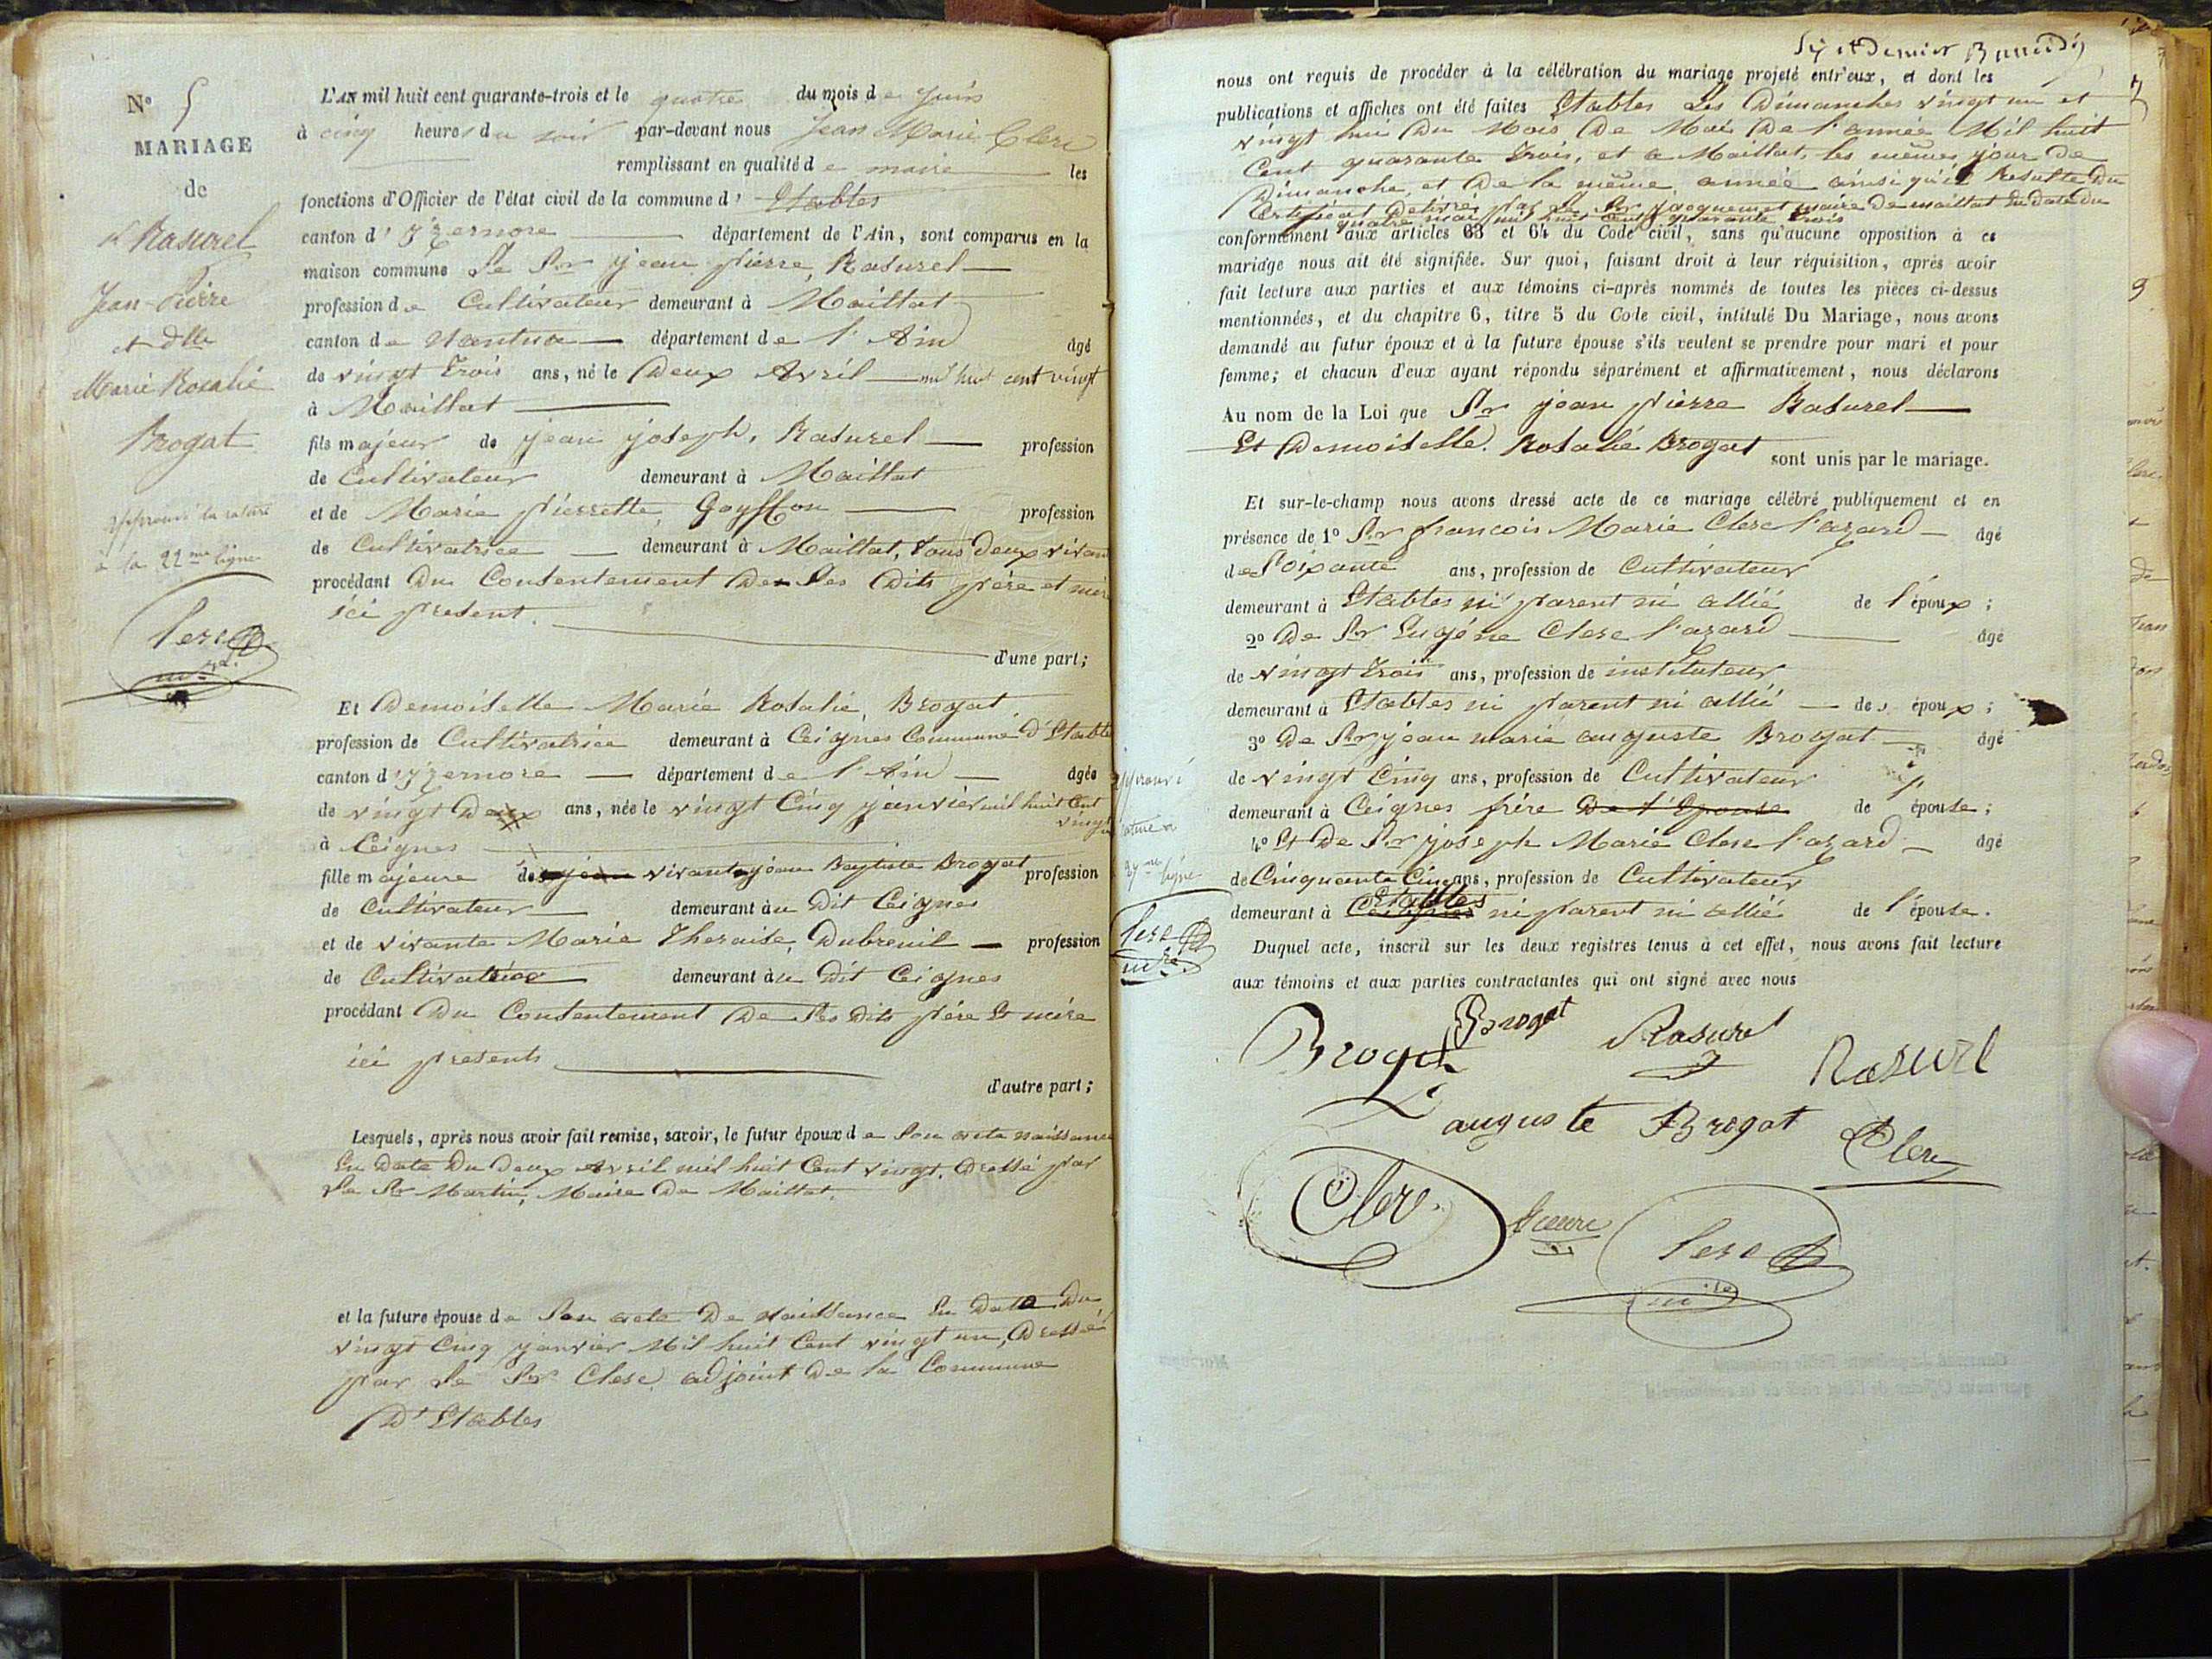 N° 5
MARIAGE
de
Rasurel
Jean-Pierre
et Dlle
Marie Rosalie
Brogat
Approuvé la rature
à la 22me ligne
Clerc
L'AN mil huit cent quarante-trois et le quatre du mois de juin
à cinq heures du soir par-devant nous Jean Marie Clerc
remplissant en qualité de maire les
fonctions d'Officier de l'état civil de la commune d' Etables
canton d'Izernore département de l'Ain, sont comparus en la
maison commune Le Sr jean pierre Rasurel
profession de Cultivateur demeurant à Maillat
canton de Nantua département de l'Ain âgé
de vingt trois ans, né le Deux Avril mil huit cent vingt
à Maillat
fils majeur de jean joseph, Rasurel profession
de Cultivateur demeurant à Maillat
et de Marie pierrette Goyffon profession
de Cultivatrice demeurant à Maillat, tous deux vivant
procédant Du Consentement De Ses Dits père et mère
ici present.
d'une part;
Et Demoiselle Marie Rosalie, Brogat
profession de Cultivatrice demeurant à Ceignes Commune D'Etables
canton d'izernore département de l'Ain âgée
de vingt Deux ans, née le vingt Cinq janvier mil huit Cent
vingt un
à Ceignes
fille majeure de vivant jean Baptiste Brogat profession
de Cultivateur demeurant au Dit Ceignes
et de vivante Marie Theraise, Dubreuil profession
de Cultivatrice demeurant au Dit Ceignes
procédant Du Consentement De Ses Dits père Et mère
ici presents
d'autre part;
Lesquels, après nous avoir fait remise, savoir, le futur époux de Son acte naissance
En Date Du Deux Avril mil huit Cent vingt. Dressé par
Le Sr Martin, Maire De Maillat.
et la future épouse de Son acte De naissance En Date Du
vingt Cinq janvier Mil huit Cent vingt un, Dressé
par Le Sr Clerc adjoint De la Commune
D'Etables
nous ont requis de procéder à la célébration du mariage projeté entr'eux, et dont les
publications et affiches ont été faites Etables Les Dimanches vingt un et
vingt huit Du Mois De Mai De l'année Mil huit
Cent quarante trois, et a Maillat, les mêmes jour De
Dimanche, et De la même année ainsi qu'il Resulte Du
Certificat Delivré par Le Sr jacquemet maire De maillat En Date Du
quatre mai mil huit Cent quarante trois
conformément aux articles 63 et 64 du Code civil, sans qu'aucune opposition à ce
mariage nous ait été signifiée. Sur quoi, faisant droit à leur réquisition, après avoir
fait lecture aux parties et aux témoins ci-après nommés de toutes les pièces ci-dessus
mentionnées, et du chapitre 6, titre 5 du Code civil, intitulé Du Mariage, nous avons
demandé au futur époux et à la future épouse s'ils veulent se prendre pour mari et pour
femme; et chacun d'eux ayant répondu séparément et affirmativement, nous déclarons
Au nom de la Loi que Sr jean pierre Rasurel
Et Demoiselle. Rosalie Brogat sont unis par le mariage.
Et sur-le-champ nous avons dressé acte de ce mariage célébré publiquement et en
présence de 1° Sr francois Marie Clerc l'azard âgé
de Soixante ans, profession de Cultivateur
demeurant à Etables ni parent ni allié de l'époux;
2° De Sr Eugène Clerc l'azard âgé
de vingt trois ans, profession de instituteur
demeurant à Etables ni parent ni allié des époux;
3° De Sr jean marie auguste Brogat âgé
de vingt Cinq ans, profession de Cultivateur
demeurant à Ceignes frère De l'Epouse de épouse;
4° Et De Sr joseph Marie Clerc l'azard âgé
de Cinquante Cinq ans, profession de Cultivateur
demeurant à Ceignes Etables ni parent ni allié de l'épouse.
approuvé
rature a
27me ligne
Clerc
mre
Duquel acte, inscrit sur les deux registres tenus à cet effet, nous avons fait lecture
aux témoins et aux parties contractantes qui ont signé avec nous
Brogat Brogat Rasurel Rasurel
auguste Brogat Clerc
Clerc Clerc